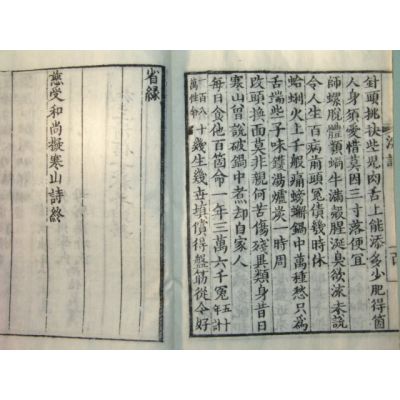 針頭挑𢪛些兒肉舌上能添多少肥得箇
人身須愛惜莫因三寸落便宜
師螺脫體類蝸牛滿殼腥涎臭欲流未說
令人生百病前頭冤債幾時休
蛤蜊火上千般痛螃蟹鍋中萬種愁只為
舌端些子味鑊湯爐炭一時周
改頭換面莫非親何苦傷殘異類身昔日
寒山曾說破鍋中煮却自家人
每日食他百箇命一年三萬六千冤五十年計
一百八十萬性命幾生幾世填償得盤筯從令好
省緣
慈受和尚擬寒山詩終